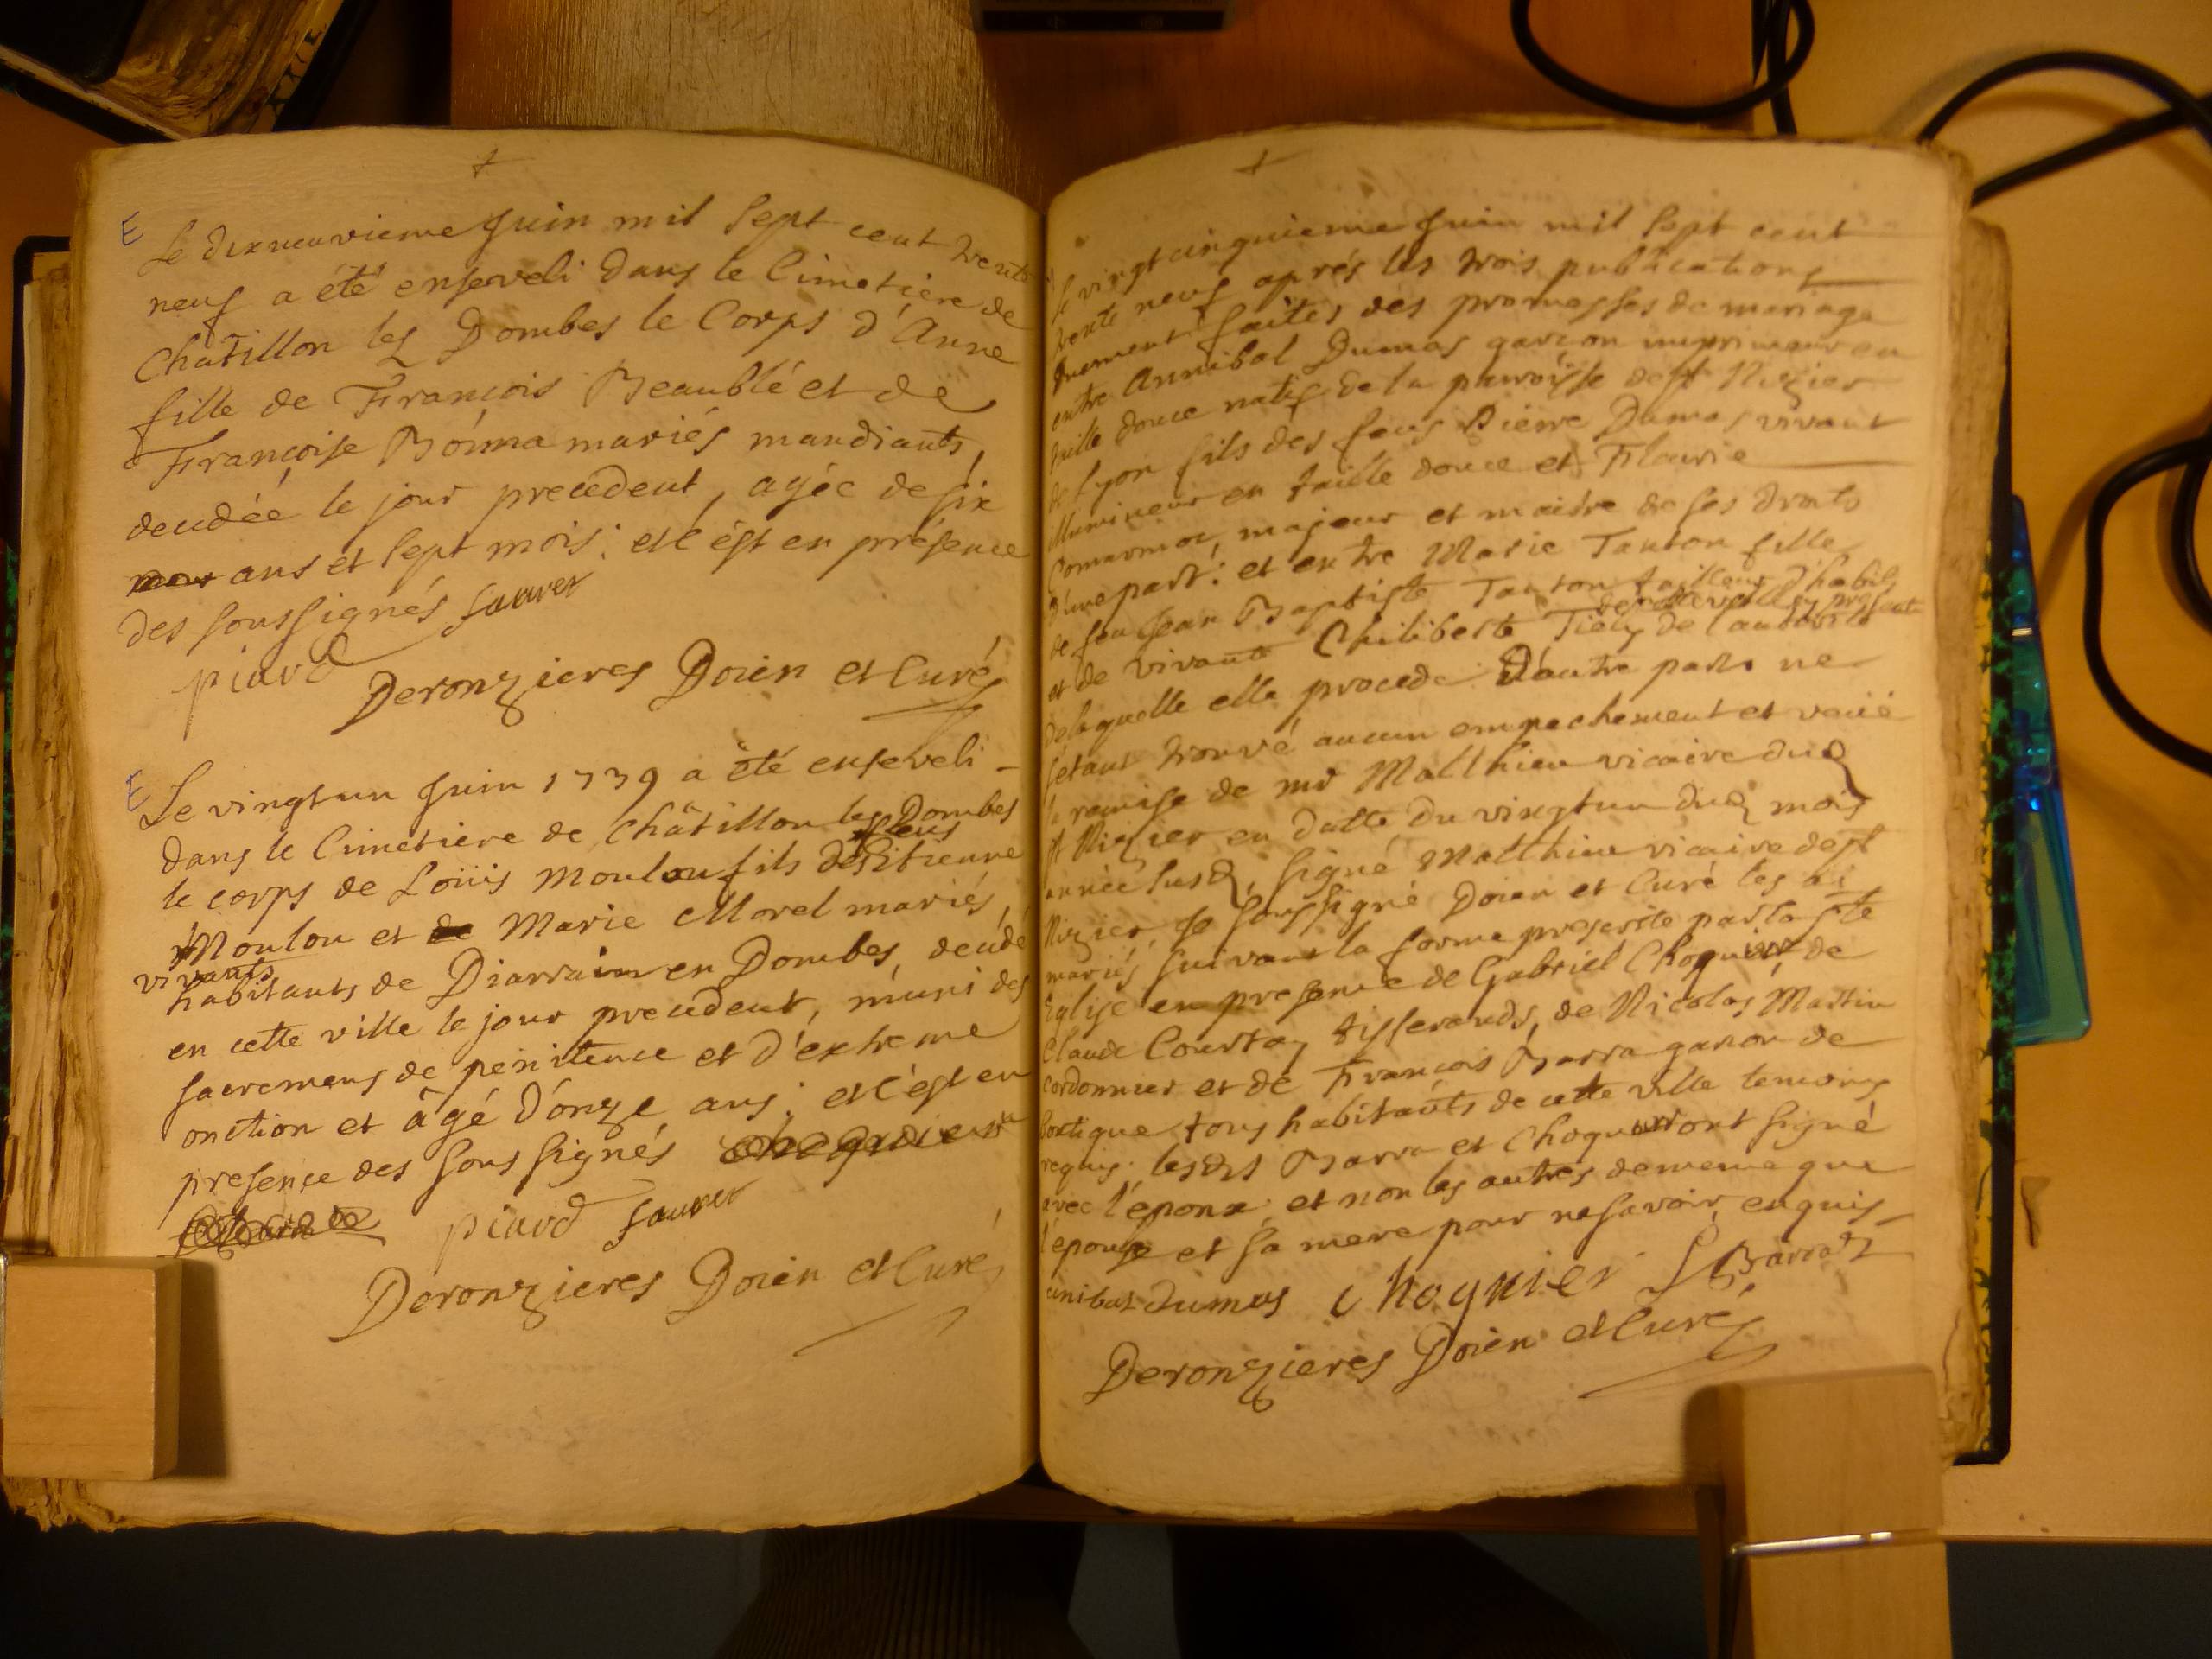 E
Le dixneuvieme Juin mil sept cent trente
neuf a été enseveli dans le Cimetiere de
Châtillon les Dombes le Corps d'Anne
fille de François Beaublé et de
Françoise Bónna mariés mandiants,
decédée le jour precedent, agée de six
ans et sept mois; et c'est en présence
des soussignés sauret
piard
Deronzieres Doien et Curé
E
Le vingt un Juin 1739 a été enseveli
dans le Cimetiere de Châtillon les Dombes
le corps de Loüis Moulou fils des Etienne
Moulou et Marie Morel mariés,
vivants
habitants de Diarrain en Dombes, decedé
en cette ville le jour precedent, muni des
sacremens de penitence et d'extreme
onction et âgé d'onze ans; et c'est en
presence des soussignés
piard sauret
Deronzieres Doien et Curé
Le vingt cinquieme Juin mil sept cent
trente neuf aprés les trois publications
duement faites des promesses de mariage
entre Annibal Dumas garçon imprimeur en
taille douce natif de la parroisse de st Nizier
de Lyon fils des feus Pierre Dumas vivant
illumineur en taille douce et Fleurie
majeur et maitre de ses droits
d'une part: et entre Marie Tauton fille
de feu Jean Baptiste Tauton tailleur d'habits
et de vivante Philiberte de cette ville
de laquelle elle procede d'autre part. ne
s'etant trouvé aucun empechement et veüe
la remise de mr Matthieu vicaire dud
st Nizier en datte du vingt un dud mois
année susd, signé Matthieu vicaire de st
Nizier, je soussigné Doien et Curé les ai
mariés suivant la forme prescrite par la ste
Eglise en presence de Gabriel Choquier de
Claude Courtoy tisserands, de Nicolas Martin
cordonnier et de François Barra garçon de
boutique tous habitants de cette ville temoins
requis; lesdts Barra et Choquier ont signé
avec l'epoux et non les autres de meme que
l'epouse et sa mere pour ne savoir, enquis
anibal dumas choquier f Barra
Deronzieres Doien et Curé